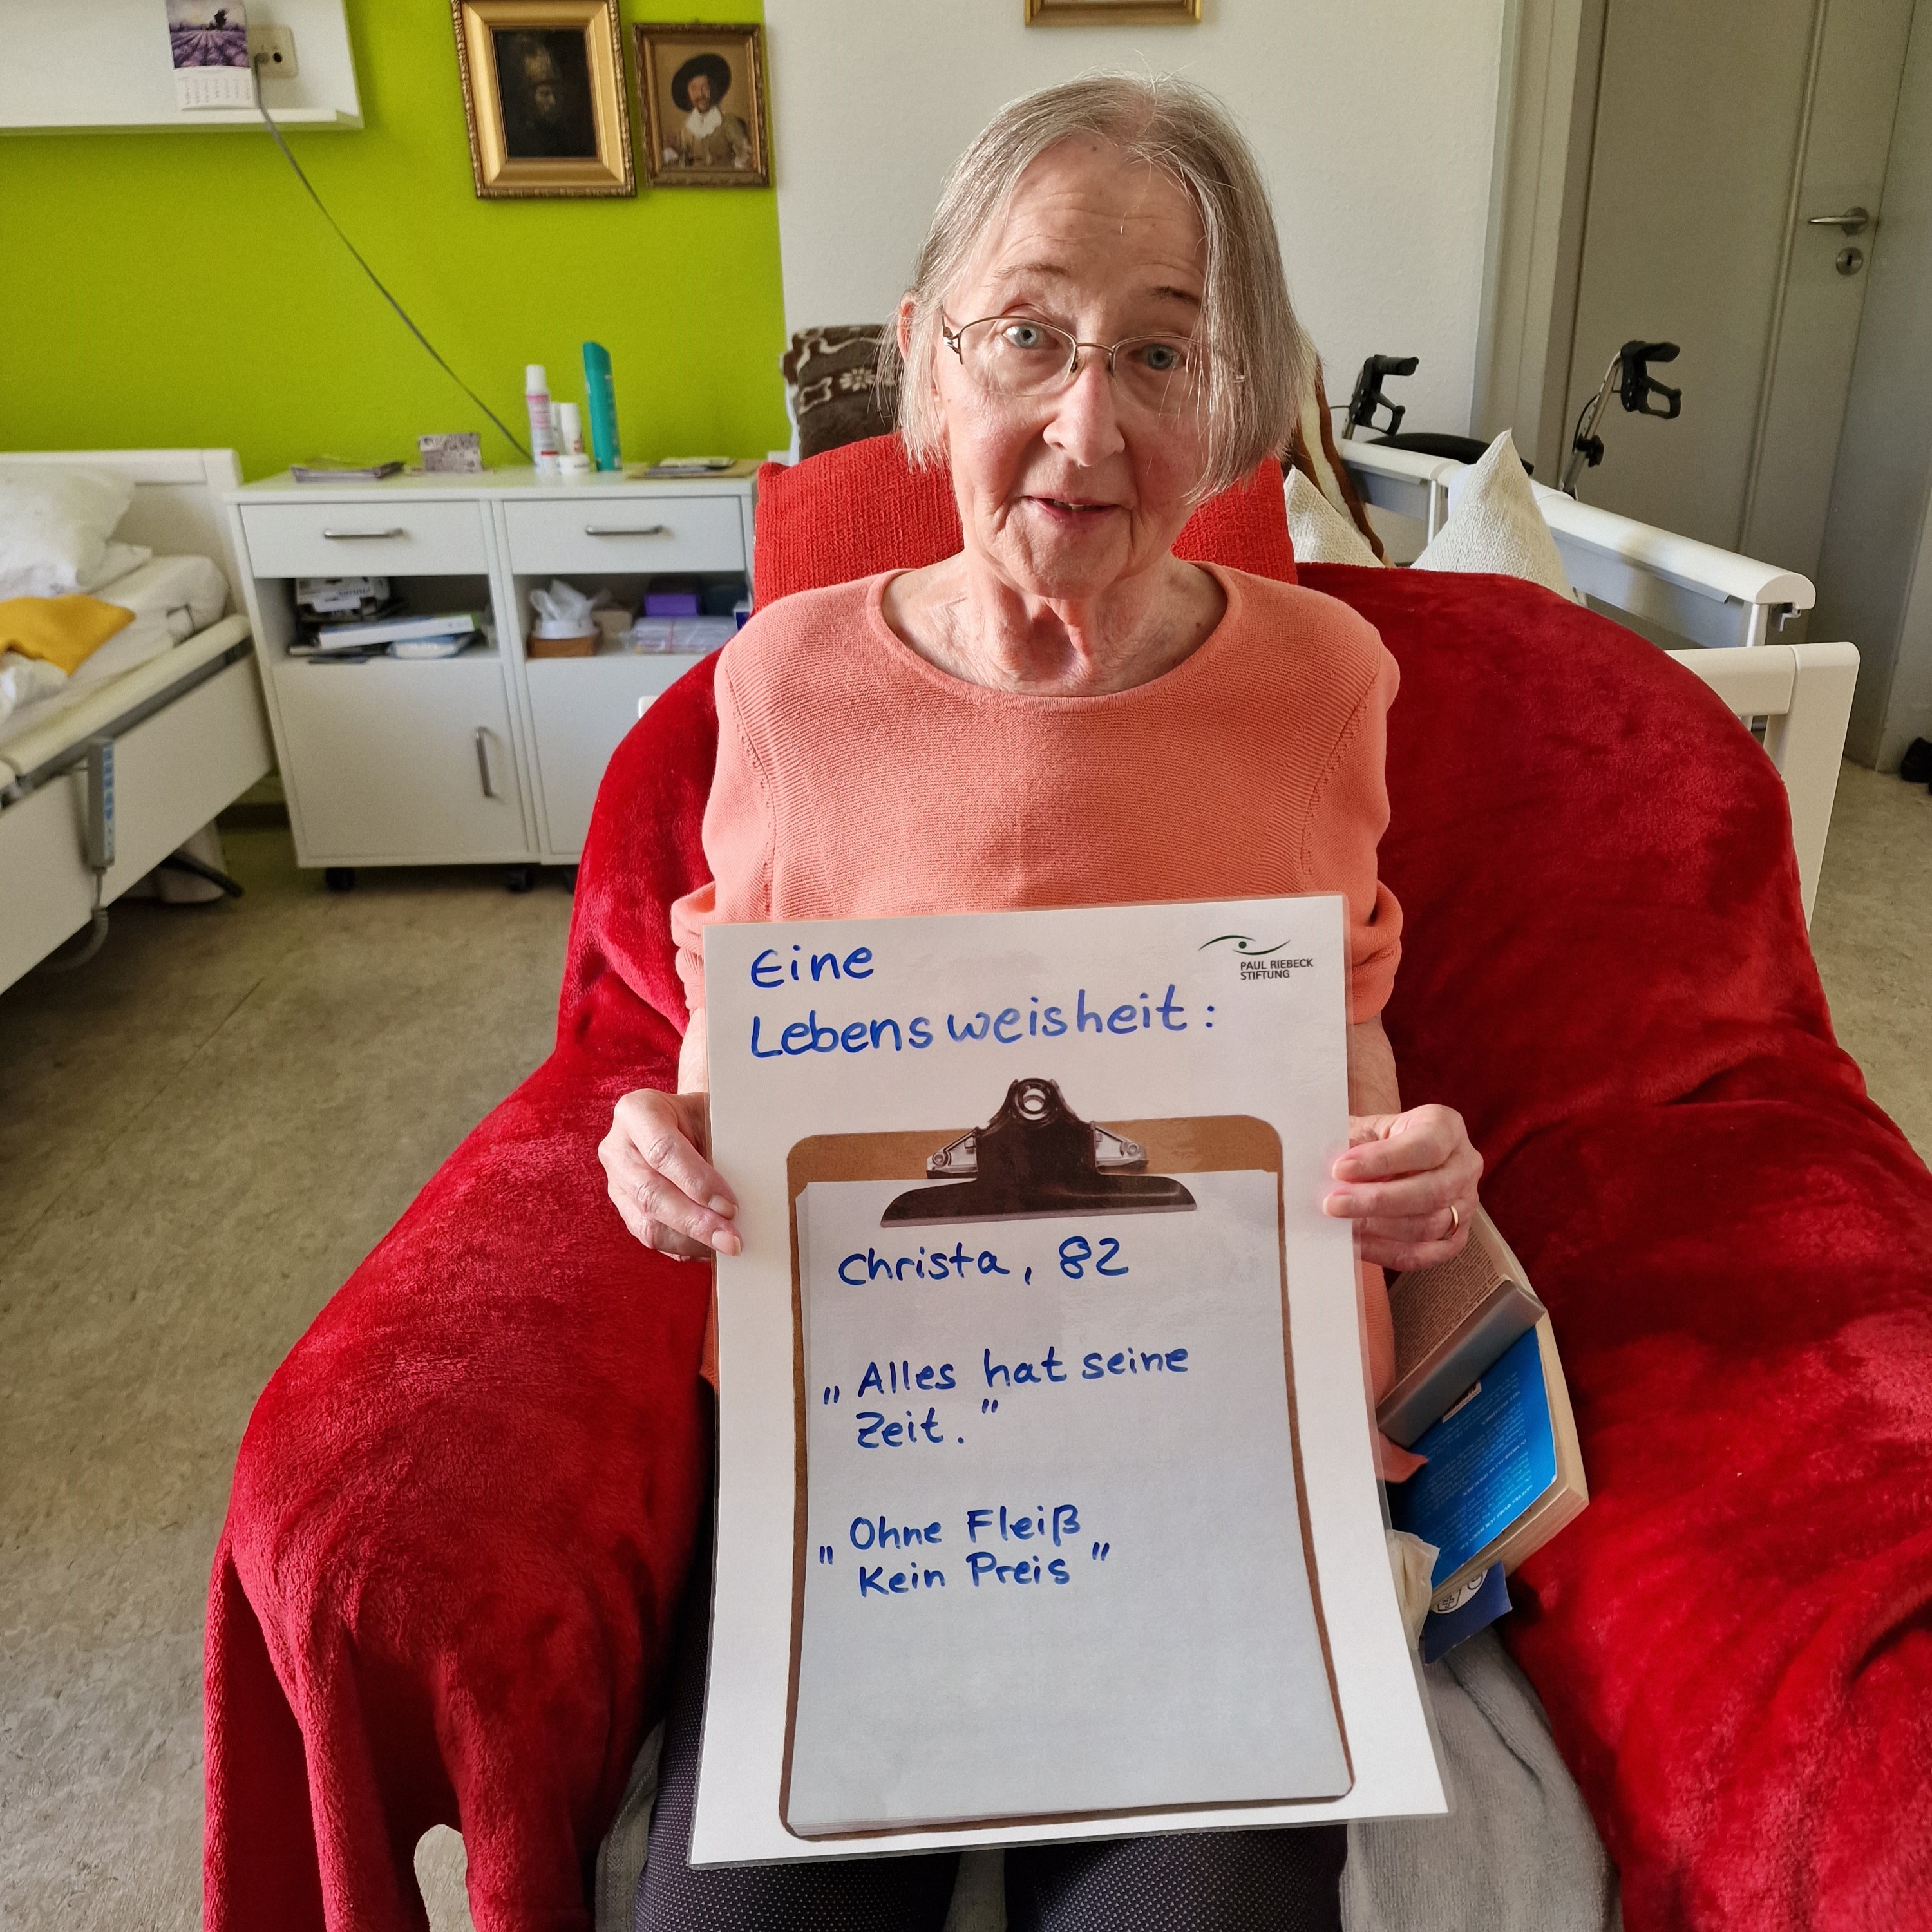 Eine
PAUL RIEBECK
STIFTUNG
Lebensweisheit:
Christa, 82
„Alles hat seine
Zeit."
„Ohne Fleiß
Kein Preis"